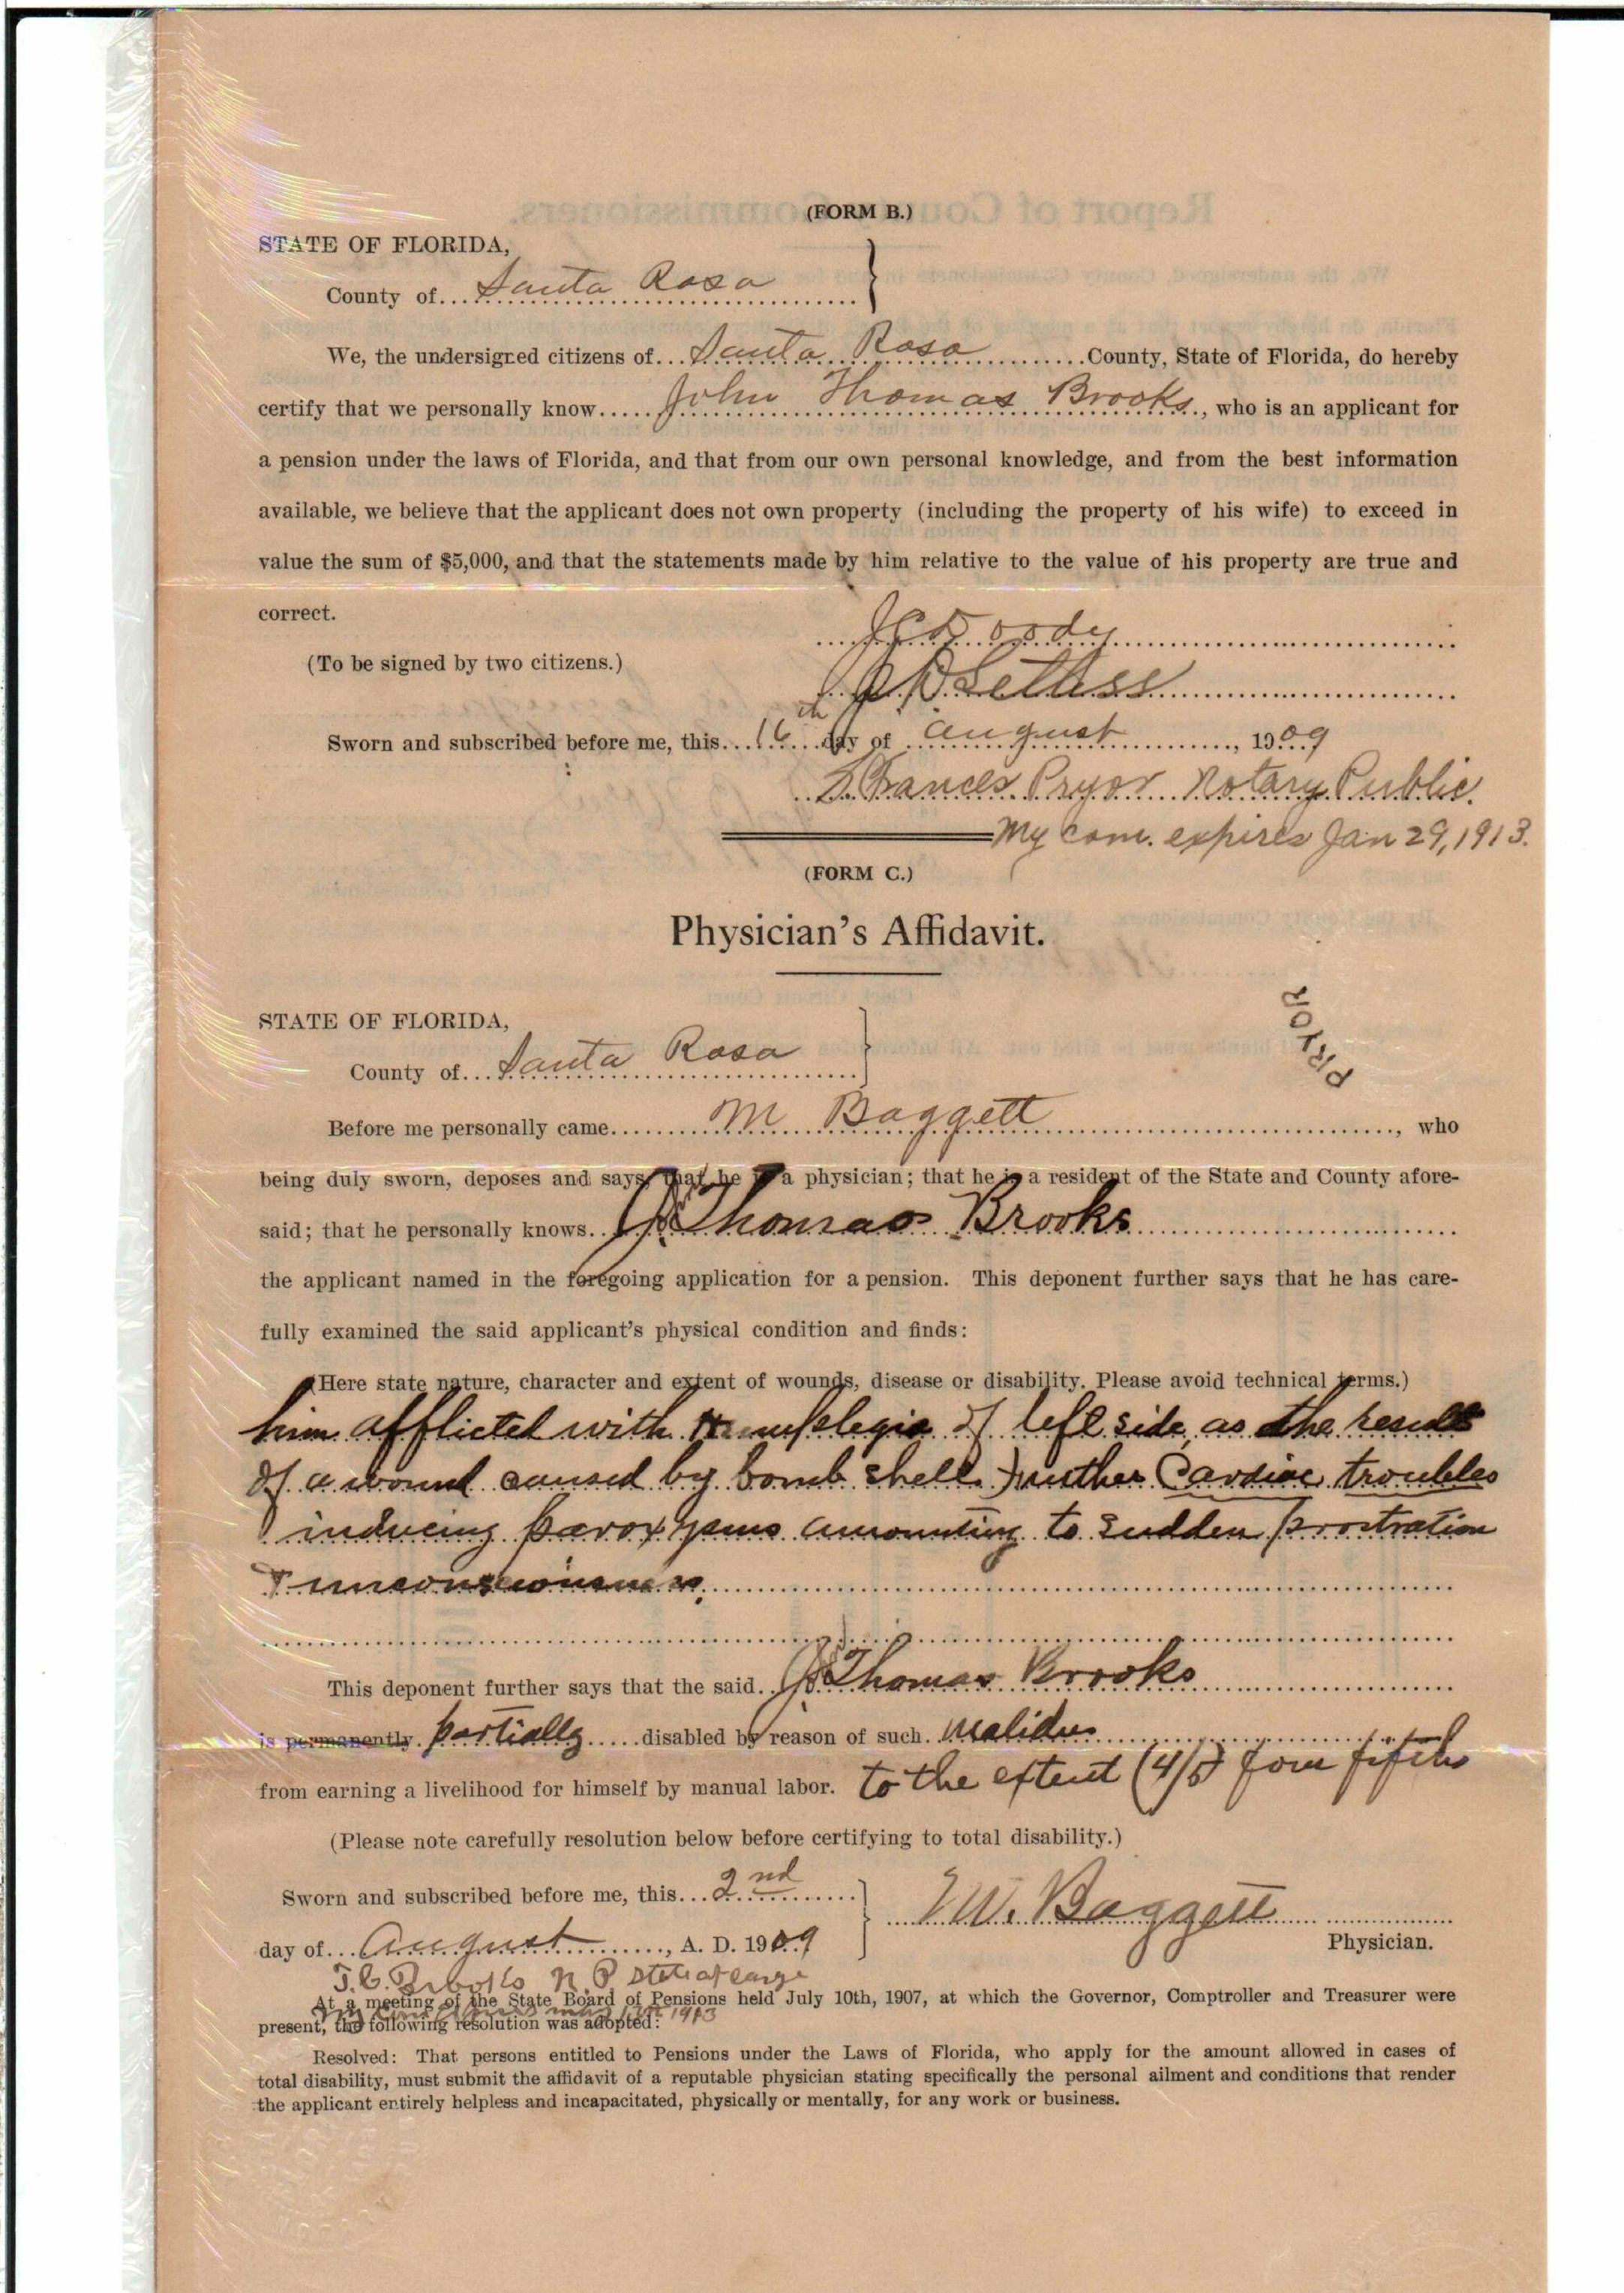 (FORM B.)
STATE OF FLORIDA,
County of Santa Rosa
We, the undersigned citizens of Santa Rosa County, State of Florida, do hereby
certify that we personally know John Thomas Brooks, who is an applicant for
a pension under the laws of Florida, and that from our own personal knowledge, and from the best information
available, we believe that the applicant does not own property (including the property of his wife) to exceed in
value the sum of $5,000, and that the statements made by him relative to the value of his property are true and
correct.
(To be signed by two citizens.)
Sworn and subscribed before me, this 16th day of August, 1909
Frances Pryor Notary Public.
My com. expires Jan 29, 1913.
(FORM C.)
Physician's Affidavit.
PRYOR
STATE OF FLORIDA,
County of Santa Rosa
Before me personally came M Baggett, who
being duly sworn, deposes and says, that he is a physician; that he is a resident of the State and County afore-
said; that he personally knows Thomas Brooks
the applicant named in the foregoing application for a pension. This deponent further says that he has care-
fully examined the said applicant's physical condition and finds:
(Here state nature, character and extent of wounds, disease or disability. Please avoid technical terms.)
him afflicted with of left side, as the result
of a wound caused by bomb shell. Further Cardiac troubles
inducing paroxysms amounting to sudden prostration
& unconsciousness.
This deponent further says that the said Thomas Brooks
is permanently partially disabled by reason of such
from earning a livelihood for himself by manual labor. to the extent (4/5) four fifths
(Please note carefully resolution below before certifying to total disability.)
Sworn and subscribed before me, this 2nd
day of August, A. D. 1909
M. Baggett
Physician.
Brooks N. P State at large
1913
At a meeting of the State Board of Pensions held July 10th, 1907, at which the Governor, Comptroller and Treasurer were
present, the following resolution was adopted:
Resolved: That persons entitled to Pensions under the Laws of Florida, who apply for the amount allowed in cases of
total disability, must submit the affidavit of a reputable physician stating specifically the personal ailment and conditions that render
the applicant entirely helpless and incapacitated, physically or mentally, for any work or business.